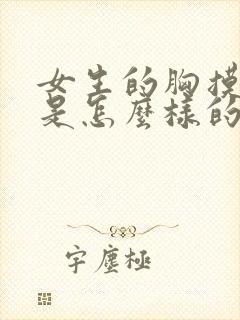 女生的胸摸
是怎麼樣的
宇塵極